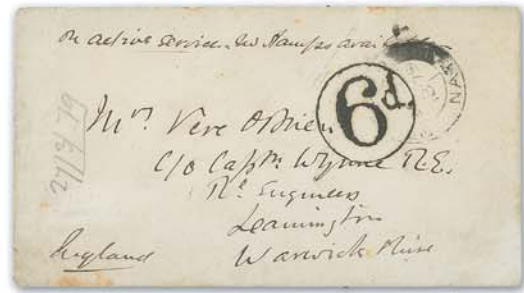 on active service. No Stamps available
6d.
Mrs. Vere O'Brien
C/o Captn. Wynne R.E.
Rl. Engineers
Leamington
Warwickshire
England
27/3/79